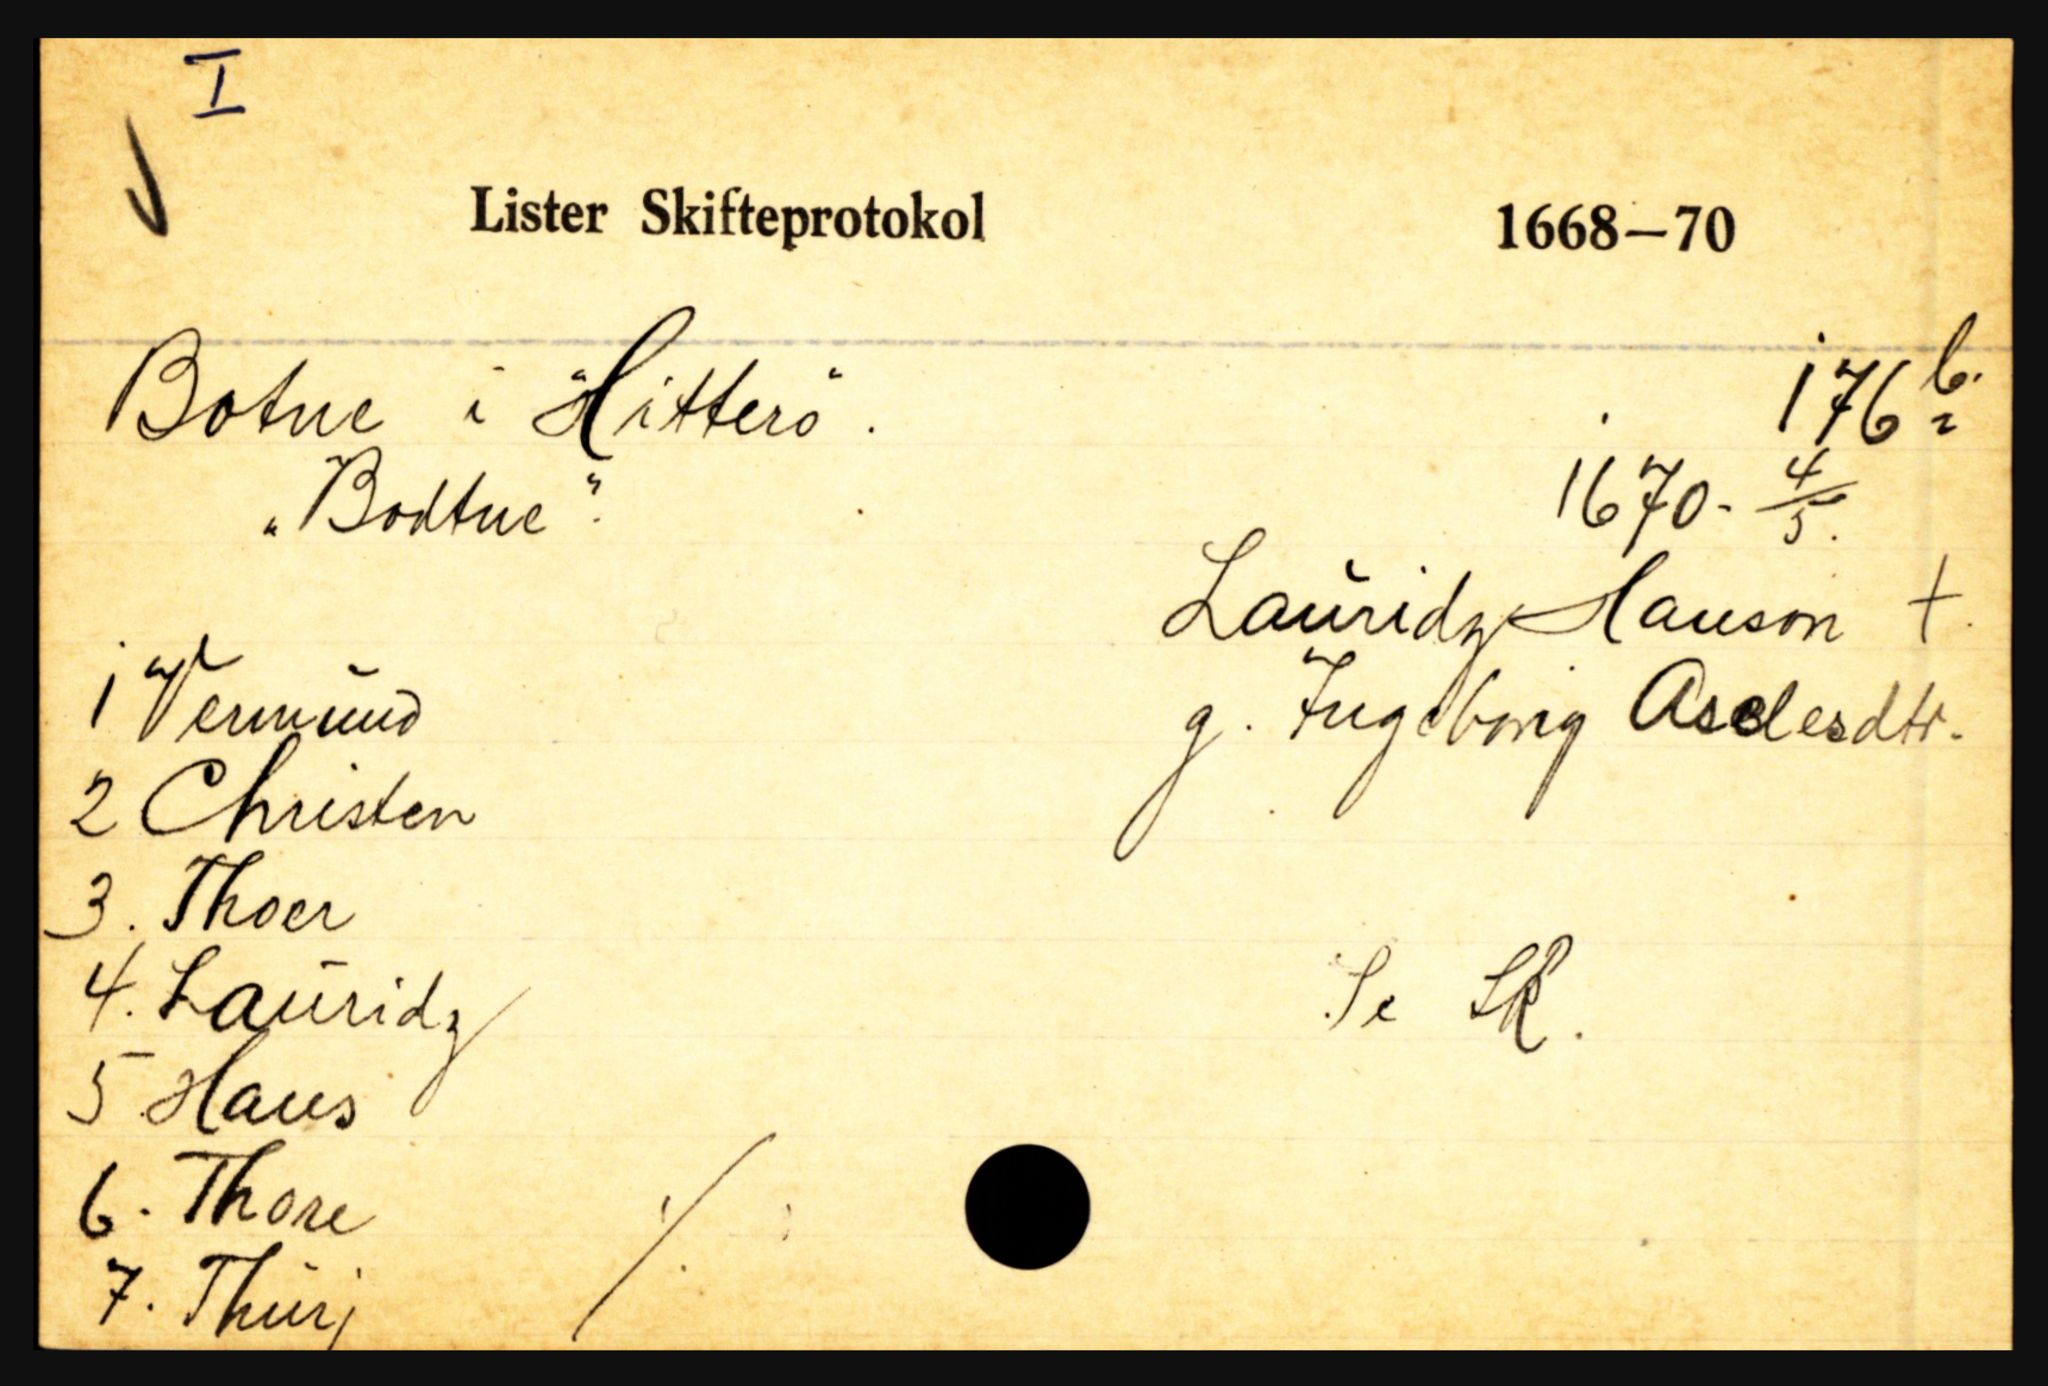 I
Lister Skifteprotokol 1668-70
Botne i "Hitterö". 176 b. 2
"Bodtne". 1670- 4/5.
Lauridz Hanson +.
1 Vermund g. Ingeborig Aselesdtr.
2 Christen
3. Thoer
4. Lauridz Se SK.
5. Hans
6. Thore ./.
7. Thurj